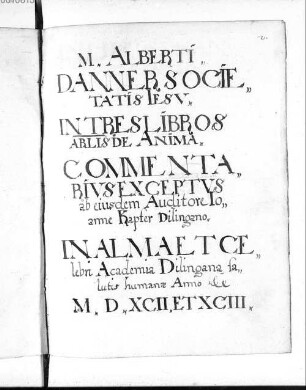 M. ALBERTI „
DANNER SOCIE„
TATIS IESV„
IN TRES LIBROS
ARLIS DE ANIMA.
COMMENTA„
RIVS EXCEPTVS
ab eiusdem Auditore Io„
anne Kapfer Dilingano.
IN ALMA ET CE„
lebri Academia Dilingana sa„
lutis humanæ Anno
M. D. XCII, ET XCIII„